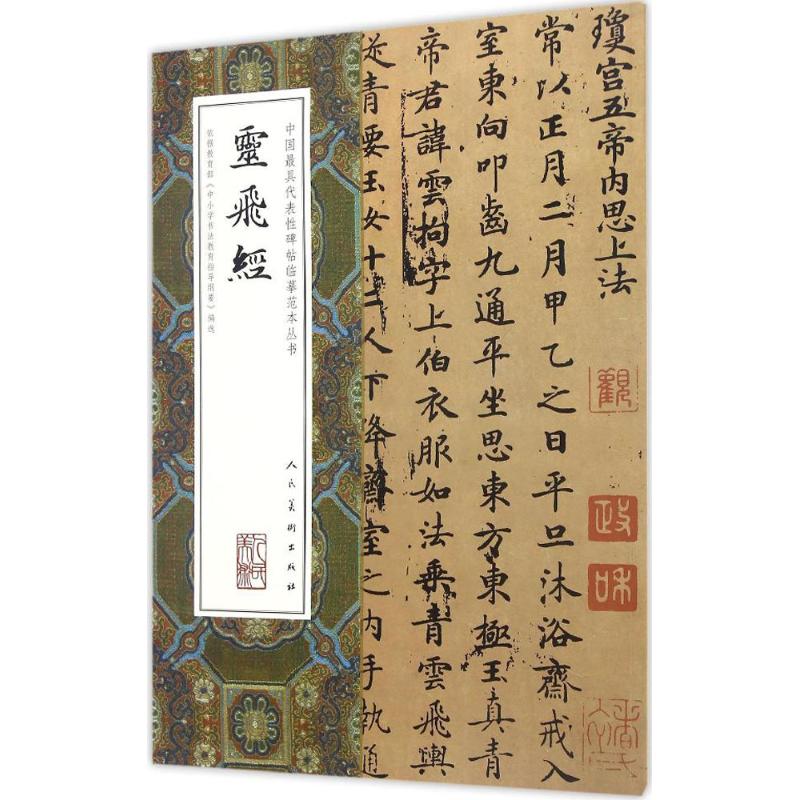 瓊宫五帝内思上法
常以正月二月甲乙之日平旦沐浴齋戒入
室東向叩齒九通平坐思東方東極玉真青
帝君諱雲拘字上伯衣服如法乗青雲飛輿
從青要玉女十二人下降齋室之内手執通
觀
政
和
中国最具代表性碑帖临摹范本丛书
靈飛經
依据教育部《中小学书法教育指导纲要》编选
人民美術出版社
人民美術